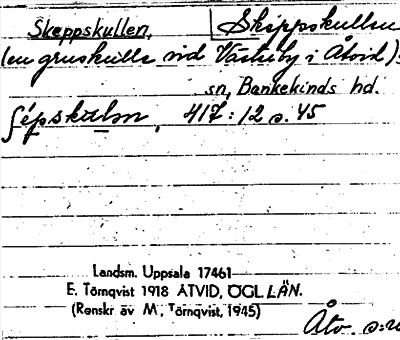 Skeppskullen, Skeppskullen
(en gruskulle vid Västerby i Åtvid):
sn, Bankekinds hd.
417: 12 s. 45
Landsm. Uppsala 17461
E. Törnqvist 1918 ÅTVID, ÖGL. LÄN.
(Renskr av M. Törnqvist, 1945)
Åtv. s:n